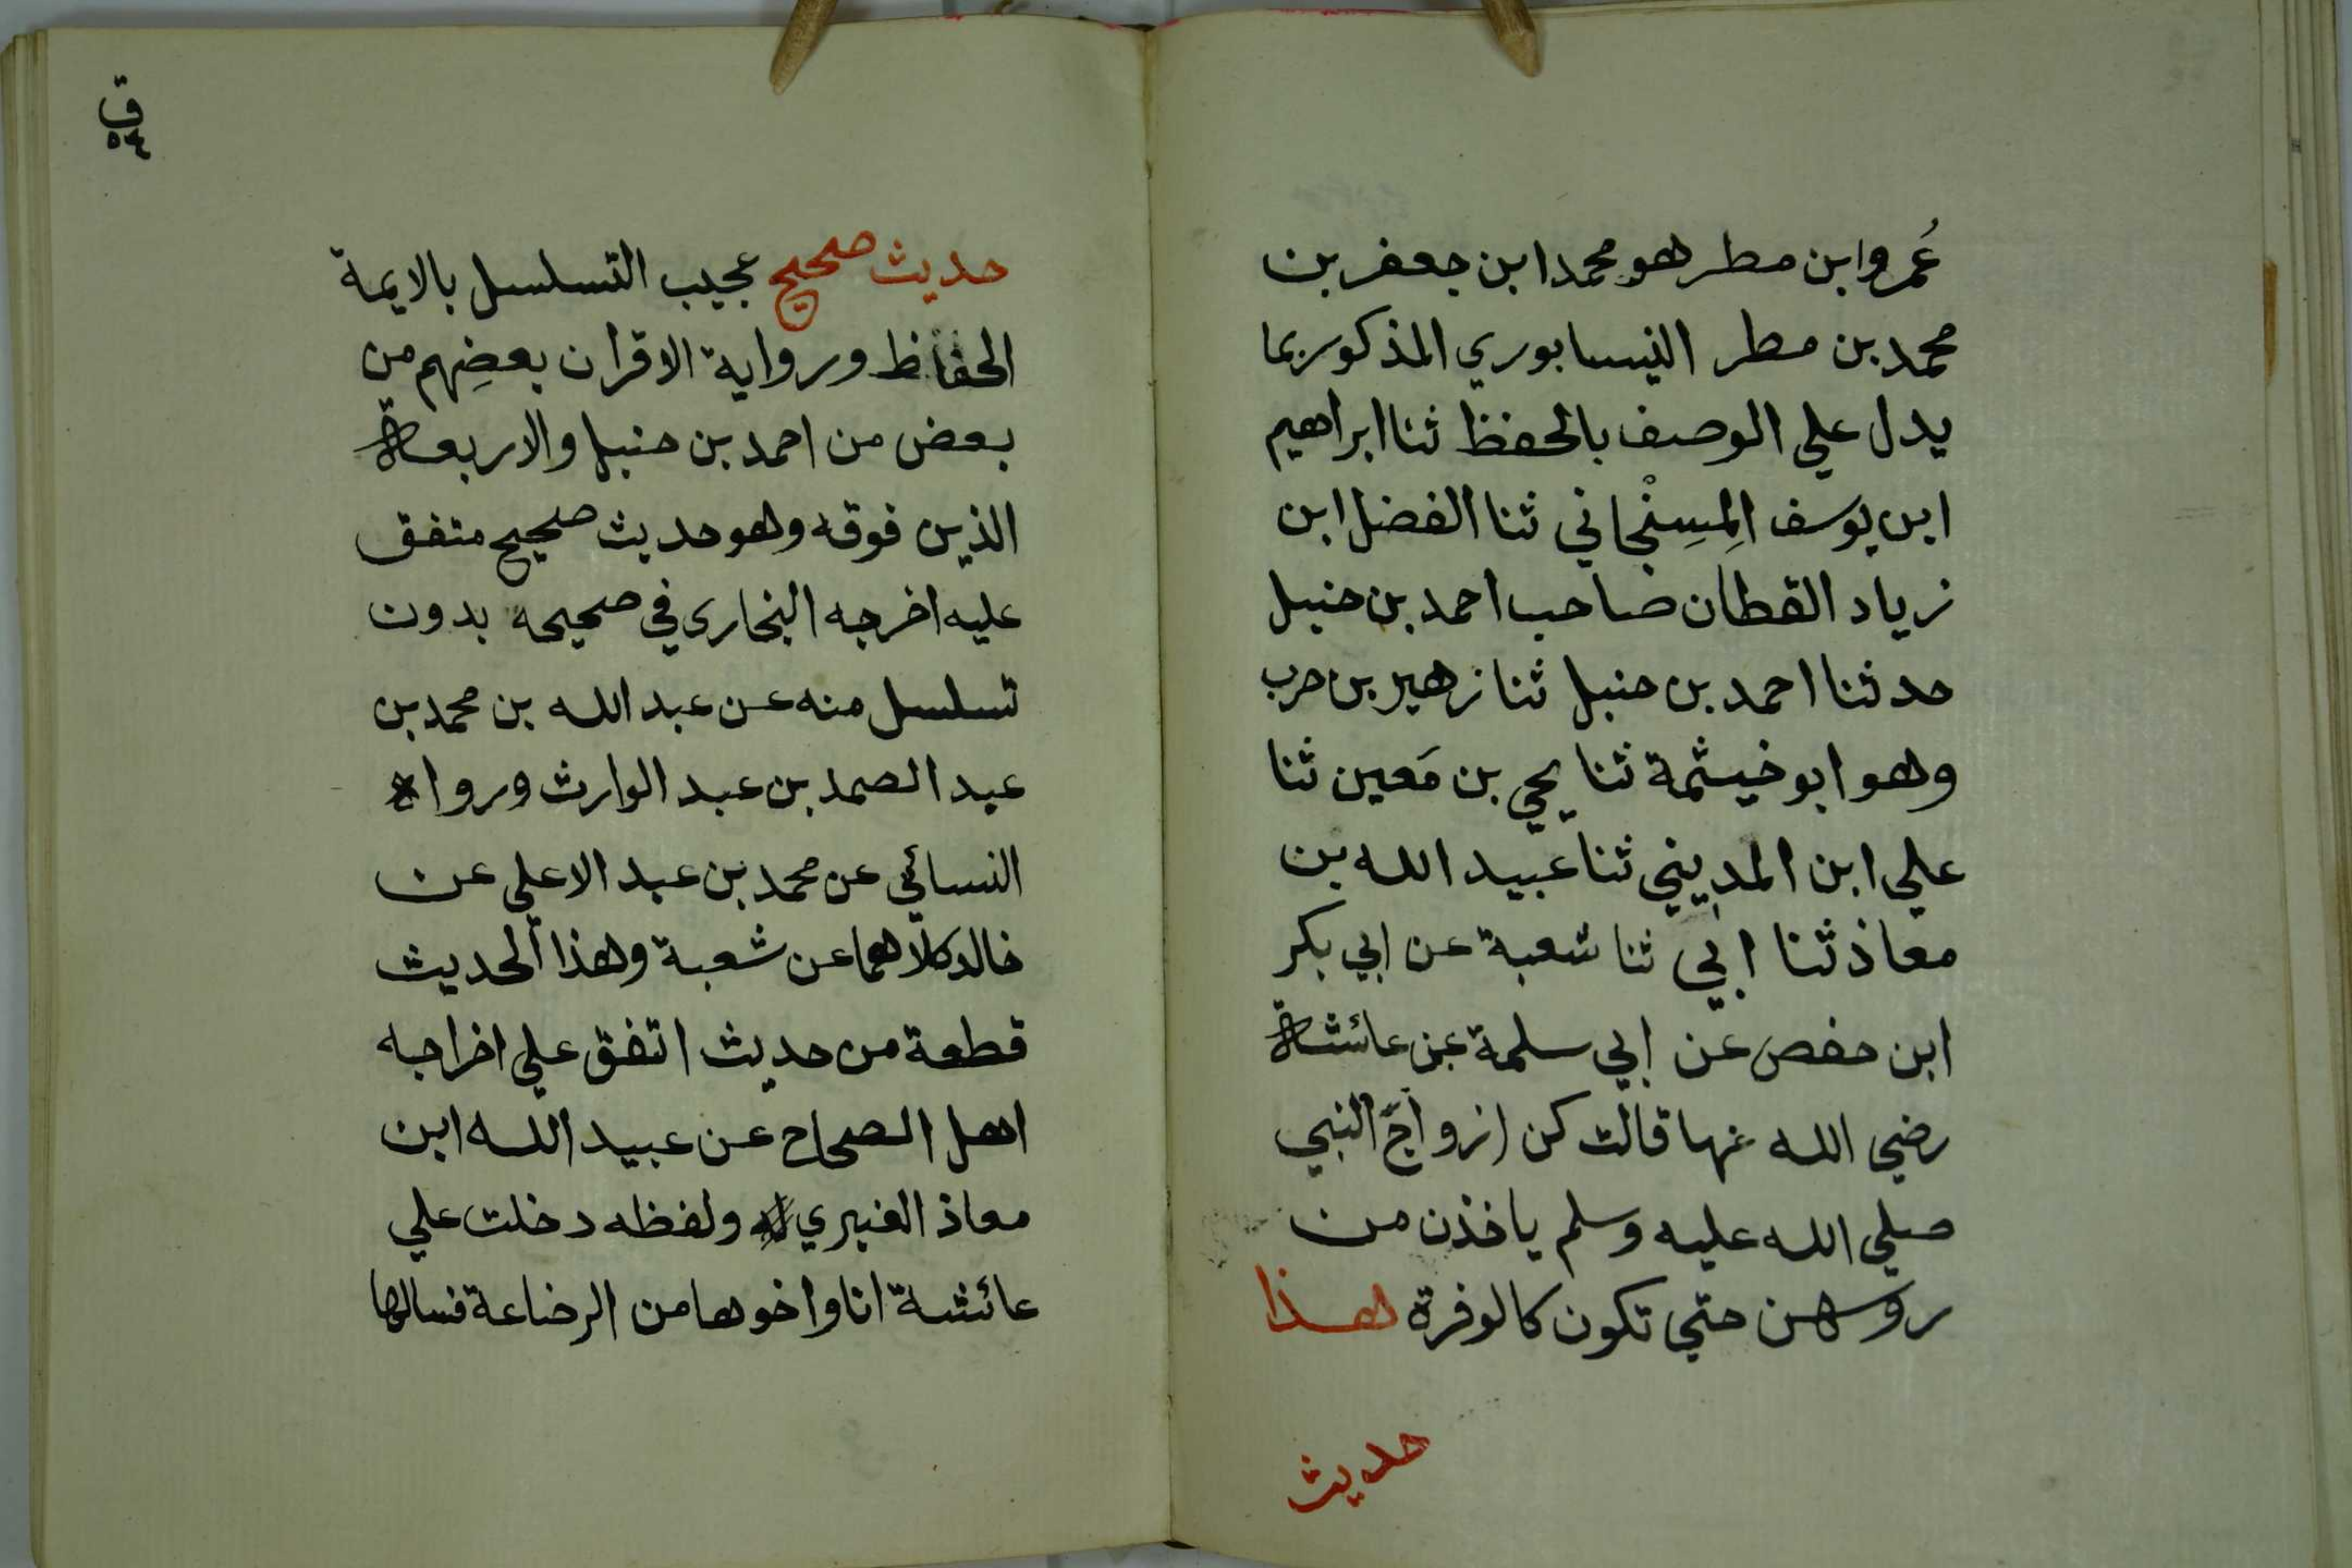 عُمر وابن مطر هو محمد ابن جعفر بن
محمد بن مطر النيسابوري المذكور بما
يدل علي الوصف بالحفظ ثنا ابراهيم
ابن يوسف المِسِنْجاني ثنا الفضل ابن
زياد القطان صاحب احمد بن حنبل
حدثنا احمد بن حنبل ثنا زهير بن حرب
وهو ابو خيثمة ثنا يحي بن مَعين ثنا
علي ابن المديني ثنا عبيد الله بن
معاذ ثنا ابي ثنا شعبة عن ابي بكر
ابن حفص عن ابي سلمة عن عائشة
رضي الله عنها قالت كن ازواج النبي
صلي الله عليه وسلم ياخذن من
روسهن حتي تكون كالوفرة هذا
حديث
ق
حديث صحيح عجيب التسلسل بالايمة
الحفاظ ورواية الاقران بعضِهم من
بعض من احمد بن حنبل والاربعة
الذين فوقه وهو حديث صحيح متفق
عليه اخرجه البخاري في صحيحه بدون
تسلسل منه عن عبد الله بن محمد بن
عبد الصمد بن عبد الوارث ورواه
النسائي عن محمد بن عبد الاعلي عن
خالد كلاهما عن شعبة وهذا الحديث
قطعة من حديث اتفق علي اخراجه
اهل الصحاح عن عبيد الله ابن
معاذ العنبري ولفظه دخلت علي
عائشة انا واخوها من الرضاعة فسالها